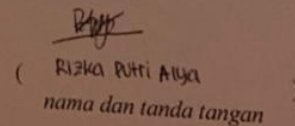 ( Rizka Putri Alya
nama dan tanda tangan